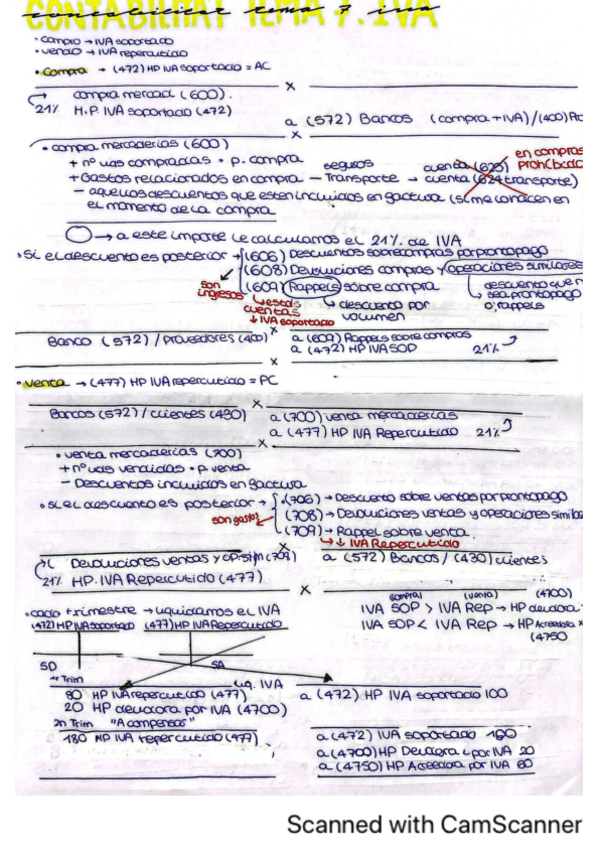 CONTABILITAT TEMA 7. IVA
contabilitat tema 7 iva
· compro → IVA soportado
· vendo → IVA repercutido
· Compra → (472) HP IVA Soportado = AC
x
compra mercad (600).
21% H.P. IVA soportado (472)
a (572) Bancos (compra + IVA) / (400)
x
· compra mercaderias (600)
en compras prohibido
+ nº uds compradas · p. compra
seguros cuenta (625)
+ Gastos relacionados en compra – Transporte → cuenta (624 transporte)
– aquellos descuentos que esten incluidos en factura (si me conocen en
el momento de la compra
→ a este importe le calculamos el 21% de IVA
· Si el descuento es posterior → (606) Descuentos sobre compras por prontopago
(608) Devoluciones compras y operaciones similares
son ingresos
(609) Rappels sobre compra
descuento que
sea prontopago
o rappels
↳ estas cuentas
↓ IVA soportado
↳ descuento por
volumen
Banco (572) / Proveedores (400)
x
a (609) Rappels sobre compras
a (472) HP IVA SOP 21%
x
· venta → (477) HP IVA repercutido = PC
x
Bancos (572) / clientes (430)
a (700) venta mercaderias
a (477) HP IVA Repercutido 21%
x
· venta mercaderias (700)
+ nº uds vendidas · p venta
– Descuentos incluidos en factura
· si el descuento es posterior → · (706) → Descuento sobre ventas por prontopago
son gastos
(708) → Devoluciones ventas y operaciones similas
(709) → Rappel sobre venta
↳ ↓ IVA Repercutido
x
Devoluciones ventas y op. sim (708)
a (572) Bancos / (430) clientes
21% HP. IVA Repercutido (477)
x
· cada trimestre → liquidamos el IVA
(compra) (venta) (4700)
IVA SOP > IVA Rep → HP deudora
(472) HP IVA Soportado (477) HP IVA Repercutido
IVA SOP < IVA Rep → HP Acreedora x
(4750
SD SA
1r Trim
liq. IVA
80 HP IVA repercutido (477)
a (472) HP IVA soportado 100
20 HP deudora por IVA (4700)
2n Trim "A compensar"
180 HP IVA repercutido (477)
a (472) IVA soportado 100
a (4700) HP Deudora por IVA 20
a (4750) HP Acreedora por IVA 60
Scanned with CamScanner